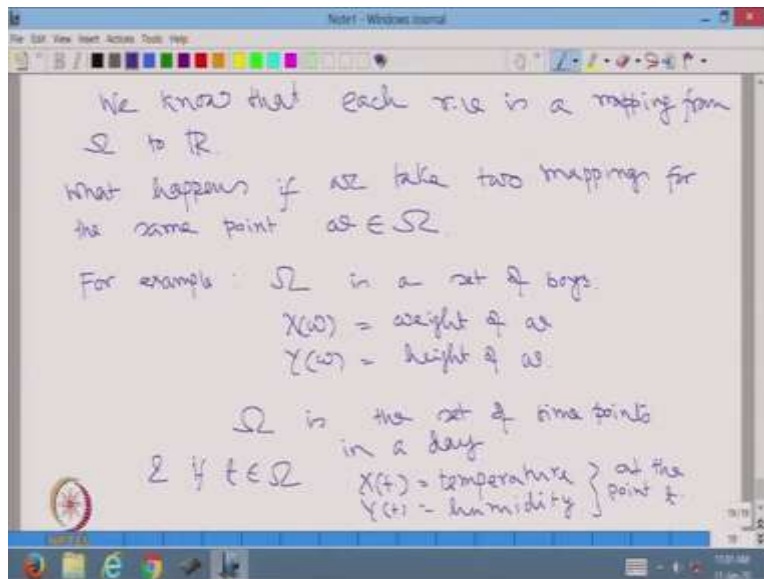 Note1 - Windows Journal
File Edit View Insert Actions Tools Help
We know that each r.v. is a mapping from
Ω to ℝ.
What happens if we take two mappings for
the same point ω ∈ Ω.
For example : Ω is a set of boys.
X(ω) = weight of ω
Y(ω) = height of ω.
Ω is the set of time points
in a day
& if t ∈ Ω X(t) = temperature } at the
Y(t) = humidity } point t.
NPTEL